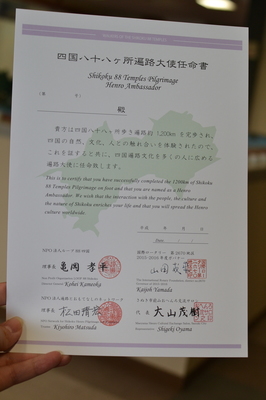 四国八十八ヶ所遍路大使任命書
Shikoku 88 Temples Pilgrimage
Henro Ambassador
殿
貴方は四国八十八ヶ所歩き遍路約1,200kmを完歩され、
四国の自然、文化、人との触れ合いを体験されたので、
これを証すると共に、四国遍路文化を多くの人に広める
遍路大使に任命致します。
This is to certify that you have successfully completed the 1200km of Shikoku
88 Temples Pilgrimage on foot and that you are named as a Henro
Ambassador. We wish that the interaction with the people, the culture and
the nature of Shikoku enriched your life and that you will spread the Henro
culture worldwide.
平成 年 月 日
Date
理事長 亀岡 孝平
Kohei Kameoka
山田
Kaijoh Yamada
理事長 松田
Kiyohiro Matsuda
代表 大山茂樹
Shigeki Oyama